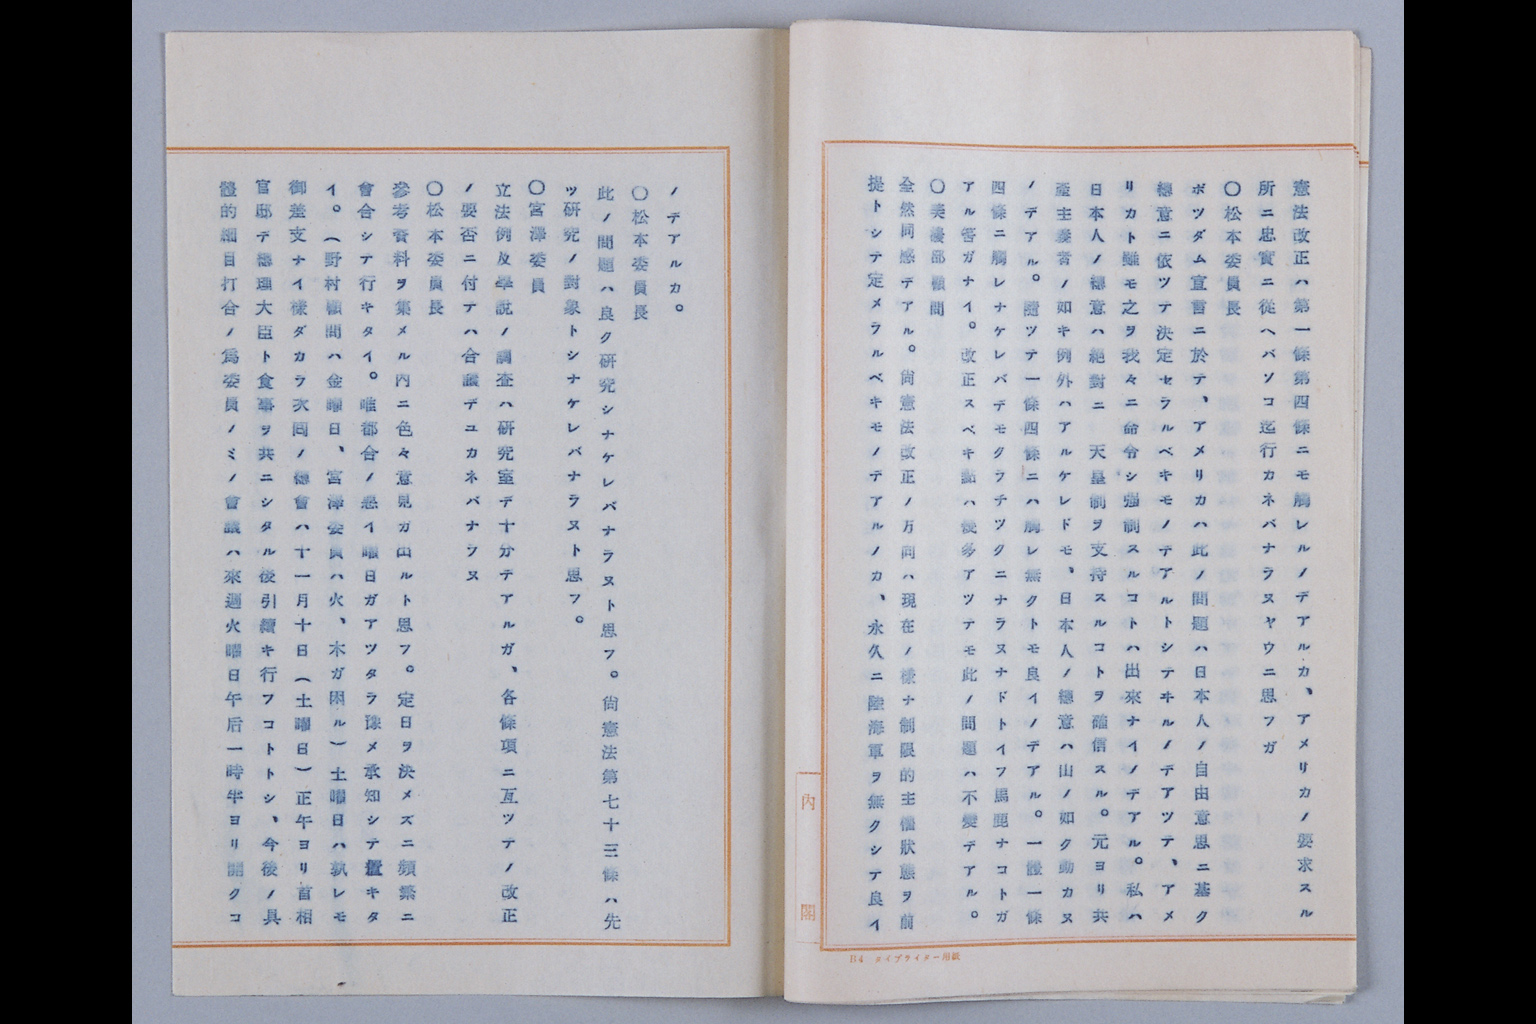 憲法改正ハ第一條第四條ニモ觸レルノデアルカ、アメリカノ要求スル
所ニ忠實ニ從ヘバソコ迄行カネバナラヌヤウニ思フガ
〇松本委員長
ポツダム宣言ニ於テ、アメリカハ此ノ問題ハ日本人ノ自由意思ニ基ク
總意ニ依ツテ決定セラルベキモノデアルトシテヰルノデアツテ、アメ
リカト雖モ之ヲ我々ニ命令シ强制スルコトハ出來ナイノデアル。私ハ
日本人ノ總意ハ絕對ニ 天皇制ヲ支持スルコトヲ確信スル。元ヨリ共
產主義者ノ如キ例外ハアルケレドモ、日本人ノ總意ハ山ノ如ク動カヌ
ノデアル。隨ツテ一條四條ニハ觸レ無クトモ良イノデアル。一體一條
四條ニ觸レナケレバデモクラチツクニナラヌナドトイフ馬鹿ナコトガ
アル筈ガナイ。改正スベキ點ハ幾多アツテモ此ノ問題ハ不變デアル。
〇美濃部顧問
全然同感デアル。尙憲法改正ノ方向ハ現在ノ樣ナ制限的主權狀態ヲ前
提トシテ定メラルベキモノデアルノカ、永久ニ陸海軍ヲ無クシテ良イ
內閣
B4 タイプライター用紙
ノデアルカ。
〇松本委員長
此ノ問題ハ良ク硏究シナケレバナラヌト思フ。尙憲法第七十三條ハ先
ツ硏究ノ對象トシナケレバナラヌト思フ。
〇宮澤委員
立法例及學說ノ調査ハ硏究室デ十分デアルガ、各條項ニ亙ツテノ改正
ノ要否ニ付テハ合議デユカネバナラヌ
〇松本委員長
參考資料ヲ集メル內ニ色々意見ガ出ルト思フ。定日ヲ決メズニ頻繁ニ
會合シテ行キタイ。唯都合ノ惡イ曜日ガアツタラ豫メ承知シテ置キタ
イ。(野村顧問ハ金曜日、宮澤委員ハ火、木ガ困ル)土曜日ハ孰レモ
御差支ナイ樣ダカラ次囘ノ總會ハ十一月十日(土曜日)正午ヨリ首相
官邸デ總理大臣ト食事ヲ共ニシタル後引續キ行フコトトシ、今後ノ具
體的細目打合ノ爲委員ノミノ會議ハ來週火曜日午后一時半ヨリ開クコ